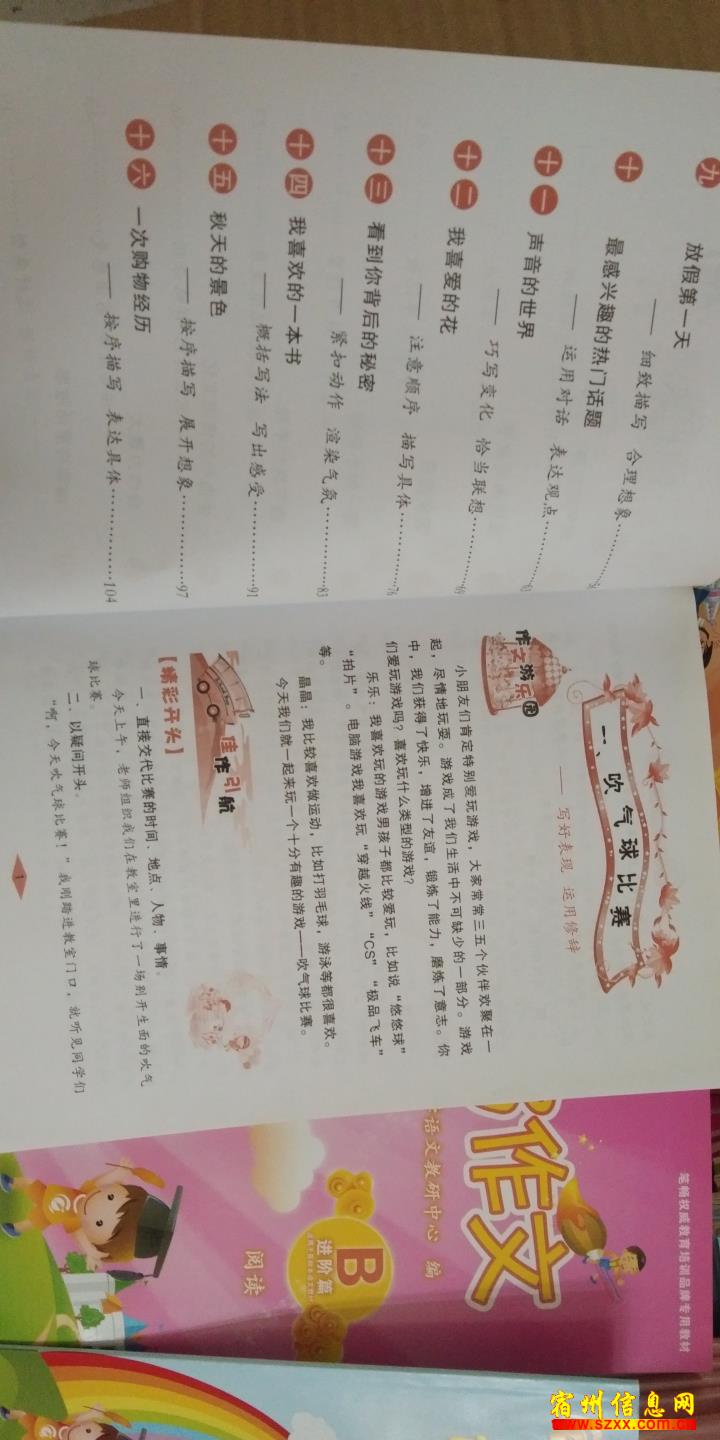 九 放假第一天
—— 细致描写 合理想象
十 最感兴趣的热门话题
—— 运用对话 表达观点
十一 声音的世界
—— 巧写变化 恰当联想………69
十二 我喜爱的花
—— 注意顺序 描写具体………76
十三 看到你背后的秘密
—— 紧扣动作 渲染气氛………83
十四 我喜欢的一本书
—— 概括写法 写出感受………91
十五 秋天的景色
—— 按序描写 展开想象………97
十六 一次购物经历
—— 按序描写 表达具体………104
一、吹气球比赛
—— 写好表现 运用修辞
作文游乐园
小朋友们肯定特别爱玩游戏，大家常常三五个伙伴欢聚在一
起，尽情地玩耍。游戏成了我们生活中不可缺少的一部分。游戏
中，我们获得了快乐，增进了友谊，锻炼了能力，磨炼了意志。你
们爱玩游戏吗？喜欢玩什么类型的游戏？
乐乐：我喜欢玩的游戏男孩子都比较爱玩，比如说“悠悠球”
“拍片”。电脑游戏我喜欢玩“穿越火线”“CS”“极品飞车”
等。
晶晶：我比较喜欢做运动，比如打羽毛球，游泳等都很喜欢。
今天我们就一起来玩一个十分有趣的游戏——吹气球比赛。
佳作引航
【精彩开头】
一、直接交代比赛的时间、地点、人物、事情。
今天上午，老师组织我们在教室里进行了一场别开生面的吹气
球比赛。
二、以疑问开头。
“啊，今天吹气球比赛！”我刚踏进教室门口，就听见同学们
1
笔畅权威教育培训品牌专用教材
作文
语文教研中心 编
B
进阶篇
阅读
宿州信息网
www.szxx.com.cn